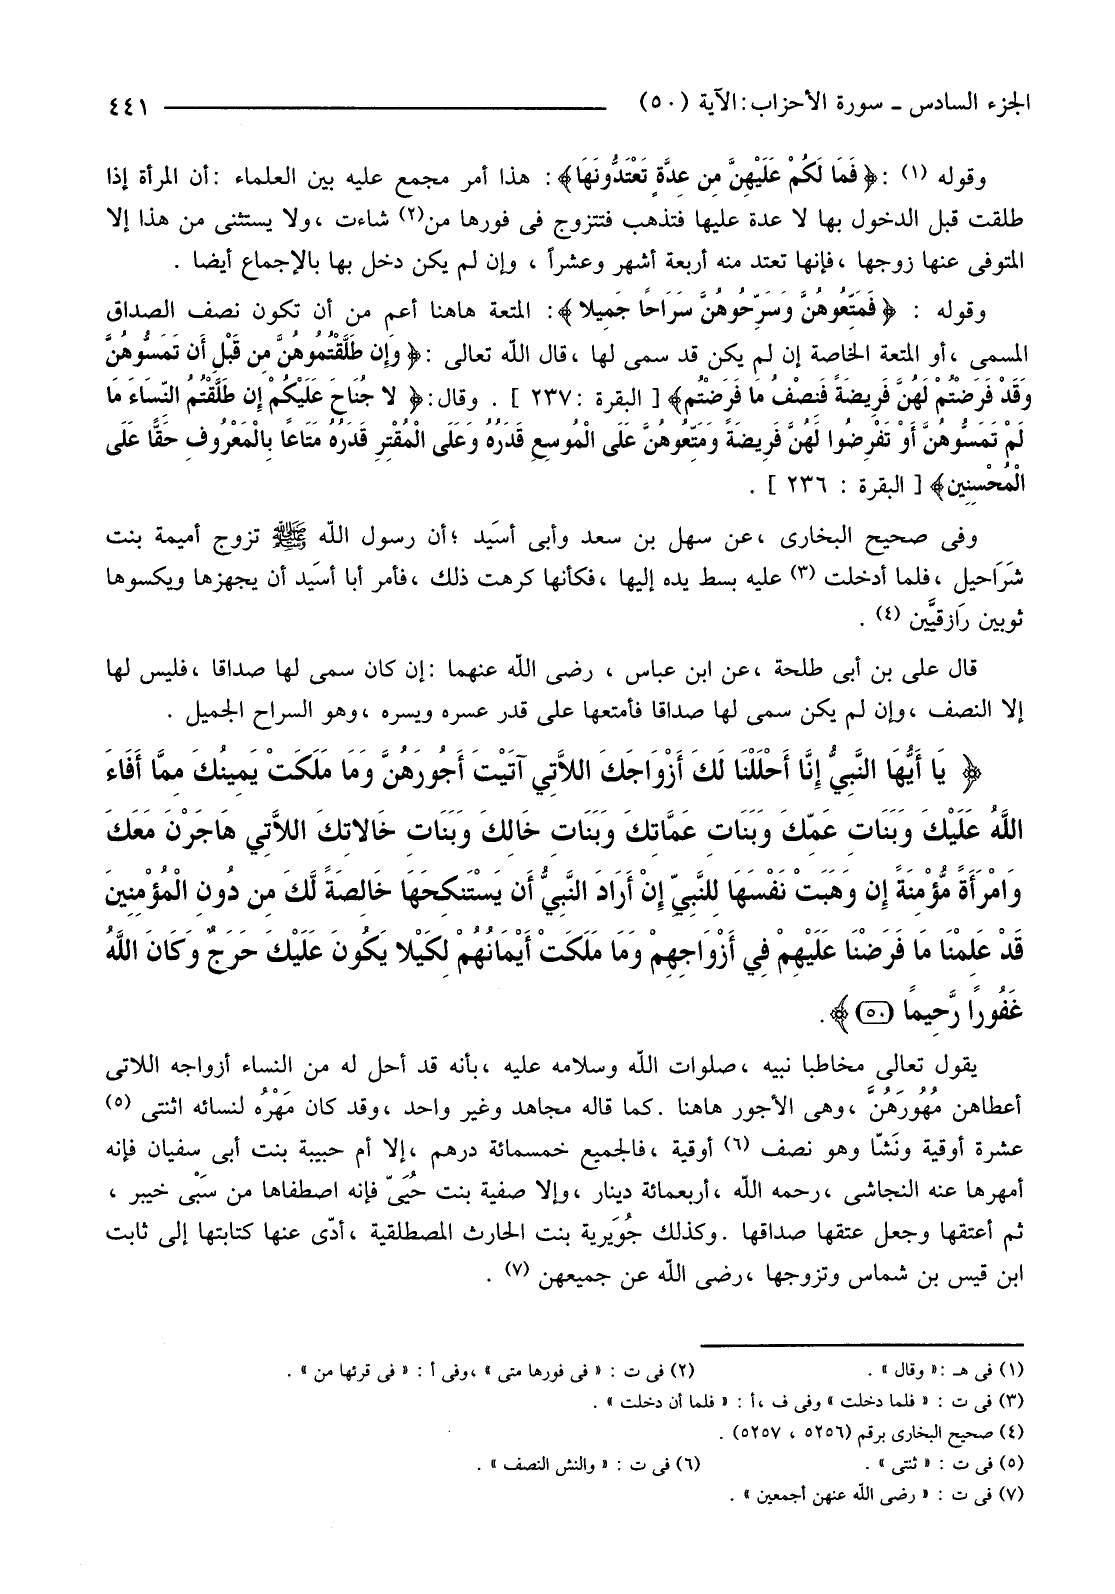 الجزء السادس ـ سورة الأحزاب: الآية (٥٠) ٤٤١
وقوله (١) : ﴿ فَمَا لَكُمْ عَلَيْهِنَّ مِن عِدَّةٍ تَعْتَدُّونَهَا﴾: هذا أمر مجمع عليه بين العلماء : أن المرأة إذا
طلقت قبل الدخول بها لا عدة عليها فتذهب فتتزوج فى فورها من(٢) شاءت ، ولا يستثنى من هذا إلا
المتوفى عنها زوجها ، فإنها تعتد منه أربعة أشهر وعشراً ، وإن لم يكن دخل بها بالإجماع أيضا .
وقوله : ﴿ فَمَتِّعُوهُنَّ وَسَرِّحُوهُنَّ سَرَاحًا جَمِيلا ﴾: المتعة هاهنا أعم من أن تكون نصف الصداق
المسمى ، أو المتعة الخاصة إن لم يكن قد سمى لها ، قال الله تعالى : ﴿ وَإِن طَلَّقْتُمُوهُنَّ مِن قَبْلِ أَن تَمَسُّوهُنَّ
وَقَدْ فَرَضْتُمْ لَهُنَّ فَرِيضَةً فَنِصْفُ مَا فَرَضْتُم﴾ [ البقرة : ٢٣٧ ] . وقال: ﴿ لا جُنَاحَ عَلَيْكُمْ إِن طَلَّقْتُمُ النِّسَاءَ مَا
لَمْ تَمَسُّوهُنَّ أَوْ تَفْرِضُوا لَهُنَّ فَرِيضَةً وَمَتِّعُوهُنَّ عَلَى الْمُوسِعِ قَدَرُهُ وَعَلَى الْمُقْتِرِ قَدَرُهُ مَتَاعًا بِالْمَعْرُوفِ حَقًّا عَلَى
الْمُحْسِنِين﴾ [ البقرة : ٢٣٦ ] .
وفى صحيح البخارى ، عن سهل بن سعد وأبى أسَيد ؛ أن رسول الله ﷺ تزوج أميمة بنت
شَرَاحيل ، فلما أدخلت (٣) عليه بسط يده إليها ، فكأنها كرهت ذلك ، فأمر أبا أسَيد أن يجهزها ويكسوها
ثوبين رَازقيَّين (٤) .
قال على بن أبى طلحة ، عن ابن عباس ، رضى الله عنهما : إن كان سمى لها صداقا ، فليس لها
إلا النصف ، وإن لم يكن سمى لها صداقا فأمتعها على قدر عسره ويسره ، وهو السراح الجميل .
﴿ يَا أَيُّهَا النَّبِيُّ إِنَّا أَحْلَلْنَا لَكَ أَزْوَاجَكَ اللاَّتِي آتَيْتَ أُجُورَهُنَّ وَمَا مَلَكَتْ يَمِينُكَ مِمَّا أَفَاءَ
اللَّهُ عَلَيْكَ وَبَنَاتِ عَمِّكَ وَبَنَاتِ عَمَّاتِكَ وَبَنَاتِ خَالِكَ وَبَنَاتِ خَالاتِكَ اللاَّتِي هَاجَرْنَ مَعَكَ
وَامْرَأَةً مُّؤْمِنَةً إِن وَهَبَتْ نَفْسَهَا لِلنَّبِيِّ إِنْ أَرَادَ النَّبِيُّ أَن يَسْتَنكِحَهَا خَالِصَةً لَّكَ مِن دُونِ الْمُؤْمِنِينَ
قَدْ عَلِمْنَا مَا فَرَضْنَا عَلَيْهِمْ فِي أَزْوَاجِهِمْ وَمَا مَلَكَتْ أَيْمَانُهُمْ لِكَيْلا يَكُونَ عَلَيْكَ حَرَجٌ وَكَانَ اللَّهُ
غَفُورًا رَّحِيمًا (٥٠)﴾.
يقول تعالى مخاطبا نبيه ، صلوات الله وسلامه عليه ، بأنه قد أحل له من النساء أزواجه اللاتى
أعطاهن مُهُورَهُنَّ ، وهى الأجور هاهنا . كما قاله مجاهد وغير واحد ، وقد كان مَهْرُه لنسائه اثنتى (٥)
عشرة أوقية ونَشّا وهو نصف (٦) أوقية ، فالجميع خمسمائة درهم ، إلا أم حبيبة بنت أبى سفيان فإنه
أمهرها عنه النجاشى ، رحمه الله ، أربعمائة دينار ، وإلا صفية بنت حُيَىّ فإنه اصطفاها من سَبْى خيبر ،
ثم أعتقها وجعل عتقها صداقها . وكذلك جُوَيرية بنت الحارث المصطلقية ، أدّى عنها كتابتها إلى ثابت
ابن قيس بن شماس وتزوجها ، رضى الله عن جميعهن (٧) .
(١) فى هـ : « وقال » . (٢) فى ت : « فى فورها متى » ، وفى أ : « فى قرئها من » .
(٣) فى ت : « فلما دخلت » وفى ف ، أ : « فلما أن دخلت » .
(٤) صحيح البخارى برقم (٥٢٥٦ ، ٥٢٥٧) .
(٥) فى ت : « ثنتى » . (٦) فى ت : « والنش النصف » .
(٧) فى ت : « رضى الله عنهن أجمعين » .